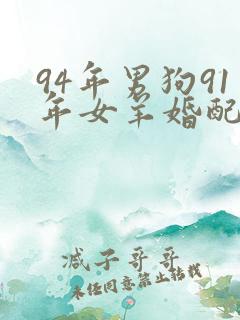 94年男狗91
年女羊婚配
减子哥哥
未经同意禁止转载